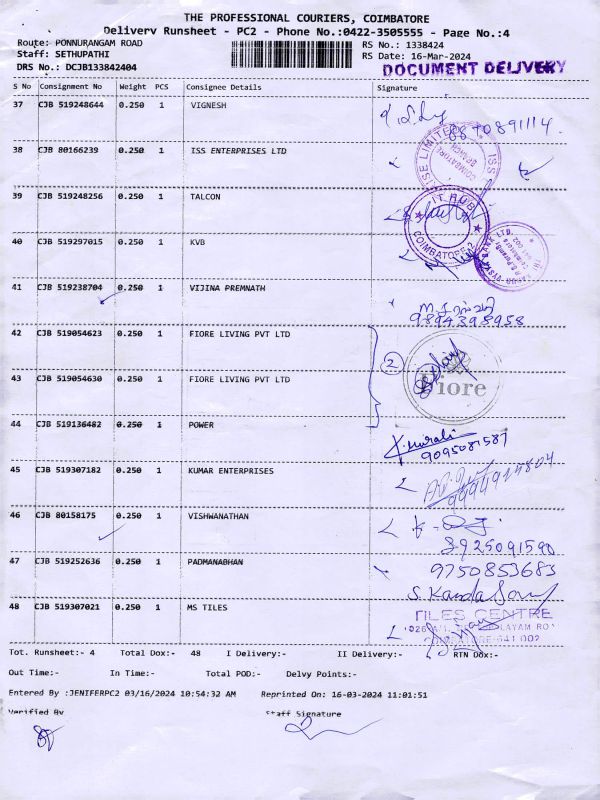 THE PROFESSIONAL COURIERS, COIMBATORE
Delivery Runsheet - PC2 - Phone No.:0422-3505555 - Page No.:4
Route: PONNURANGAM ROAD RS No.: 1338424
Staff: SETHUPATHI RS Date: 16-Mar-2024
DRS No.: DCJB133842404 DOCUMENT DELIVERY
S No Consignment No Weight PCS Consignee Details Signature
37 CJB 519248644 0.250 1 VIGNESH
8870891114.
38 CJB 80166239 0.250 1 ISS ENTERPRISES LTD
COIMBATORE BRANCH
39 CJB 519248256 0.250 1 TALCON
IT HUB
COIMBATORE-2
40 CJB 297015 0.250 1 KVB
41 CJB 519238704 0.250 1 VIJINA PREMNATH
9894398958
42 CJB 519054623 0.250 1 FIORE LIVING PVT LTD
2
Fiore
43 CJB 519054630 0.250 1 FIORE LIVING PVT LTD
44 CJB 519136482 0.250 1 POWER
9095081587
45 CJB 519307182 0.250 1 KUMAR ENTERPRISES
46 CJB 80158175 0.250 1 VISHWANATHAN
8925091590
47 CJB 519252636 0.250 1 PADMANABHAN
9750853683
48 CJB 519307021 0.250 1 MS TILES
TILES CENTRE
COIMBATORE-641 002
Tot. Runsheet:- 4 Total Dox:- 48 I Delivery:- II Delivery:- RTN Dox:-
Out Time:- In Time:- Total POD:- Delvy Points:-
Entered By :JENIFERPC2 03/16/2024 10:54:32 AM Reprinted On: 16-03-2024 11:01:51
Verified By Staff Signature